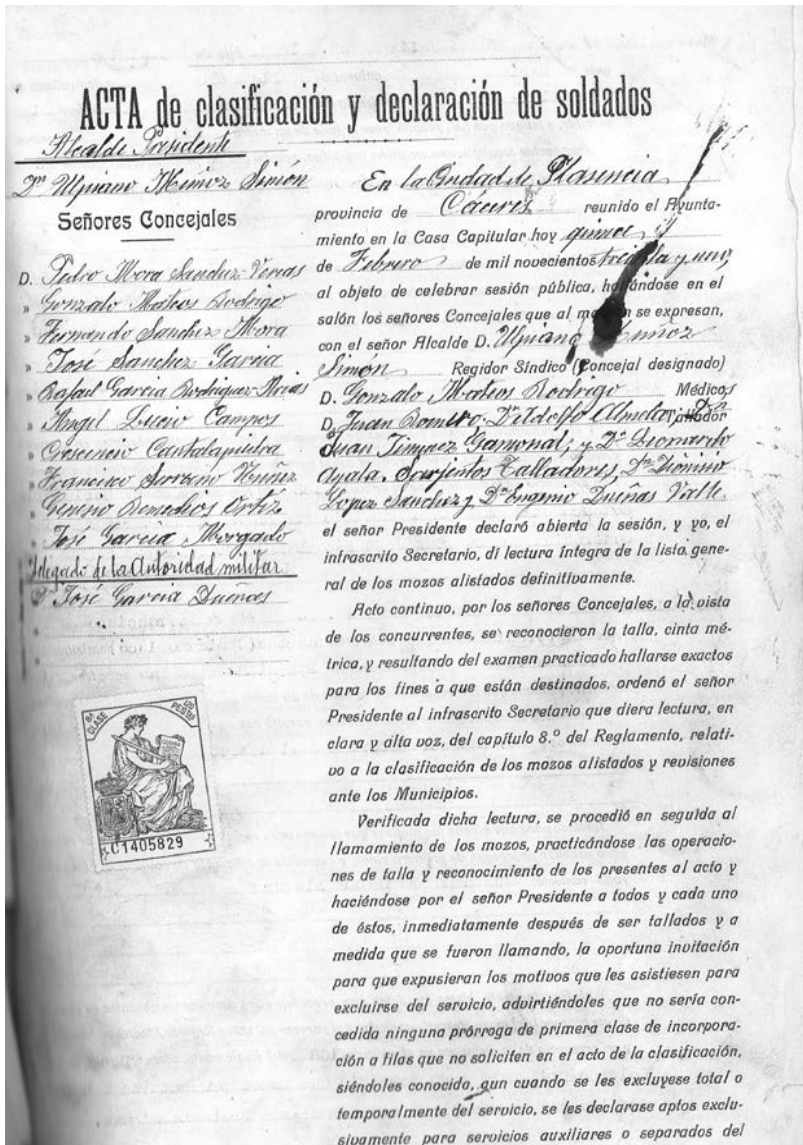 ACTA de clasificación y declaración de soldados
Alcalde Presidente
Dn Ulpiano Muñoz Simón
Señores Concejales
D. Pedro Mora Sanchez-Veneas
» Gonzalo Mateos Rodrigo
» Fernando Sanchez Mora
» José Sanchez Garcia
» Rafael Garcia Rodriguez-Arias
» Angel Lucio Campos
» Crescencio Cantalapiedra
» Francisco Serrano Nuñez
» Remedios Ortiz
» José Garcia Morgado
delegado de la Autoridad militar
D José Garcia Dueñas
8ª CLASE
C1405829
En la Ciudad de Plasencia
provincia de Cáceres reunido el Ayunta-
miento en la Casa Capitular hoy quince
de Febrero de mil novecientos treinta y uno,
al objeto de celebrar sesión pública, hallándose en el
salón los señores Concejales que al margen se expresan,
con el señor Alcalde D. Ulpiano Muñoz
Simón Regidor Síndico (Concejal designado)
D. Gonzalo Mateos Rodrigo Médicos
D. Juan Romero, Dn Adolfo Tallador Dn
Juan Jimenez Gamonal, y Dn Leonardo
Ayala. Sarjentos Talladores, Dn Dionisio
Lopez Sanchez y Dn Eugenio Dueñas Valle.
el señor Presidente declaró abierta la sesión, y yo, el
infrascrito Secretario, dí lectura íntegra de la lista gene-
ral de los mozos alistados definitivamente.
Acto continuo, por los señores Concejales, a la vista
de los concurrentes, se reconocieron la talla, cinta mé-
trica, y resultando del examen practicado hallarse exactos
para los fines a que están destinados, ordenó el señor
Presidente al infrascrito Secretario que diera lectura, en
clara y alta voz, del capítulo 8.º del Reglamento, relati-
vo a la clasificación de los mozos alistados y revisiones
ante los Municipios.
Verificada dicha lectura, se procedió en seguida al
llamamiento de los mozos, practicándose las operacio-
nes de talla y reconocimiento de los presentes al acto y
haciéndose por el señor Presidente a todos y cada uno
de éstos, inmediatamente después de ser tallados y a
medida que se fueron llamando, la oportuna invitación
para que expusieran los motivos que les asistiesen para
excluirse del servicio, advirtiéndoles que no sería con-
cedida ninguna prórroga de primera clase de incorpora-
ción a filas que no soliciten en el acto de la clasificación,
siéndoles conocida, aun cuando se les excluyese total o
temporalmente del servicio, se les declarase aptos exclu-
sivamente para servicios auxiliares o separados del